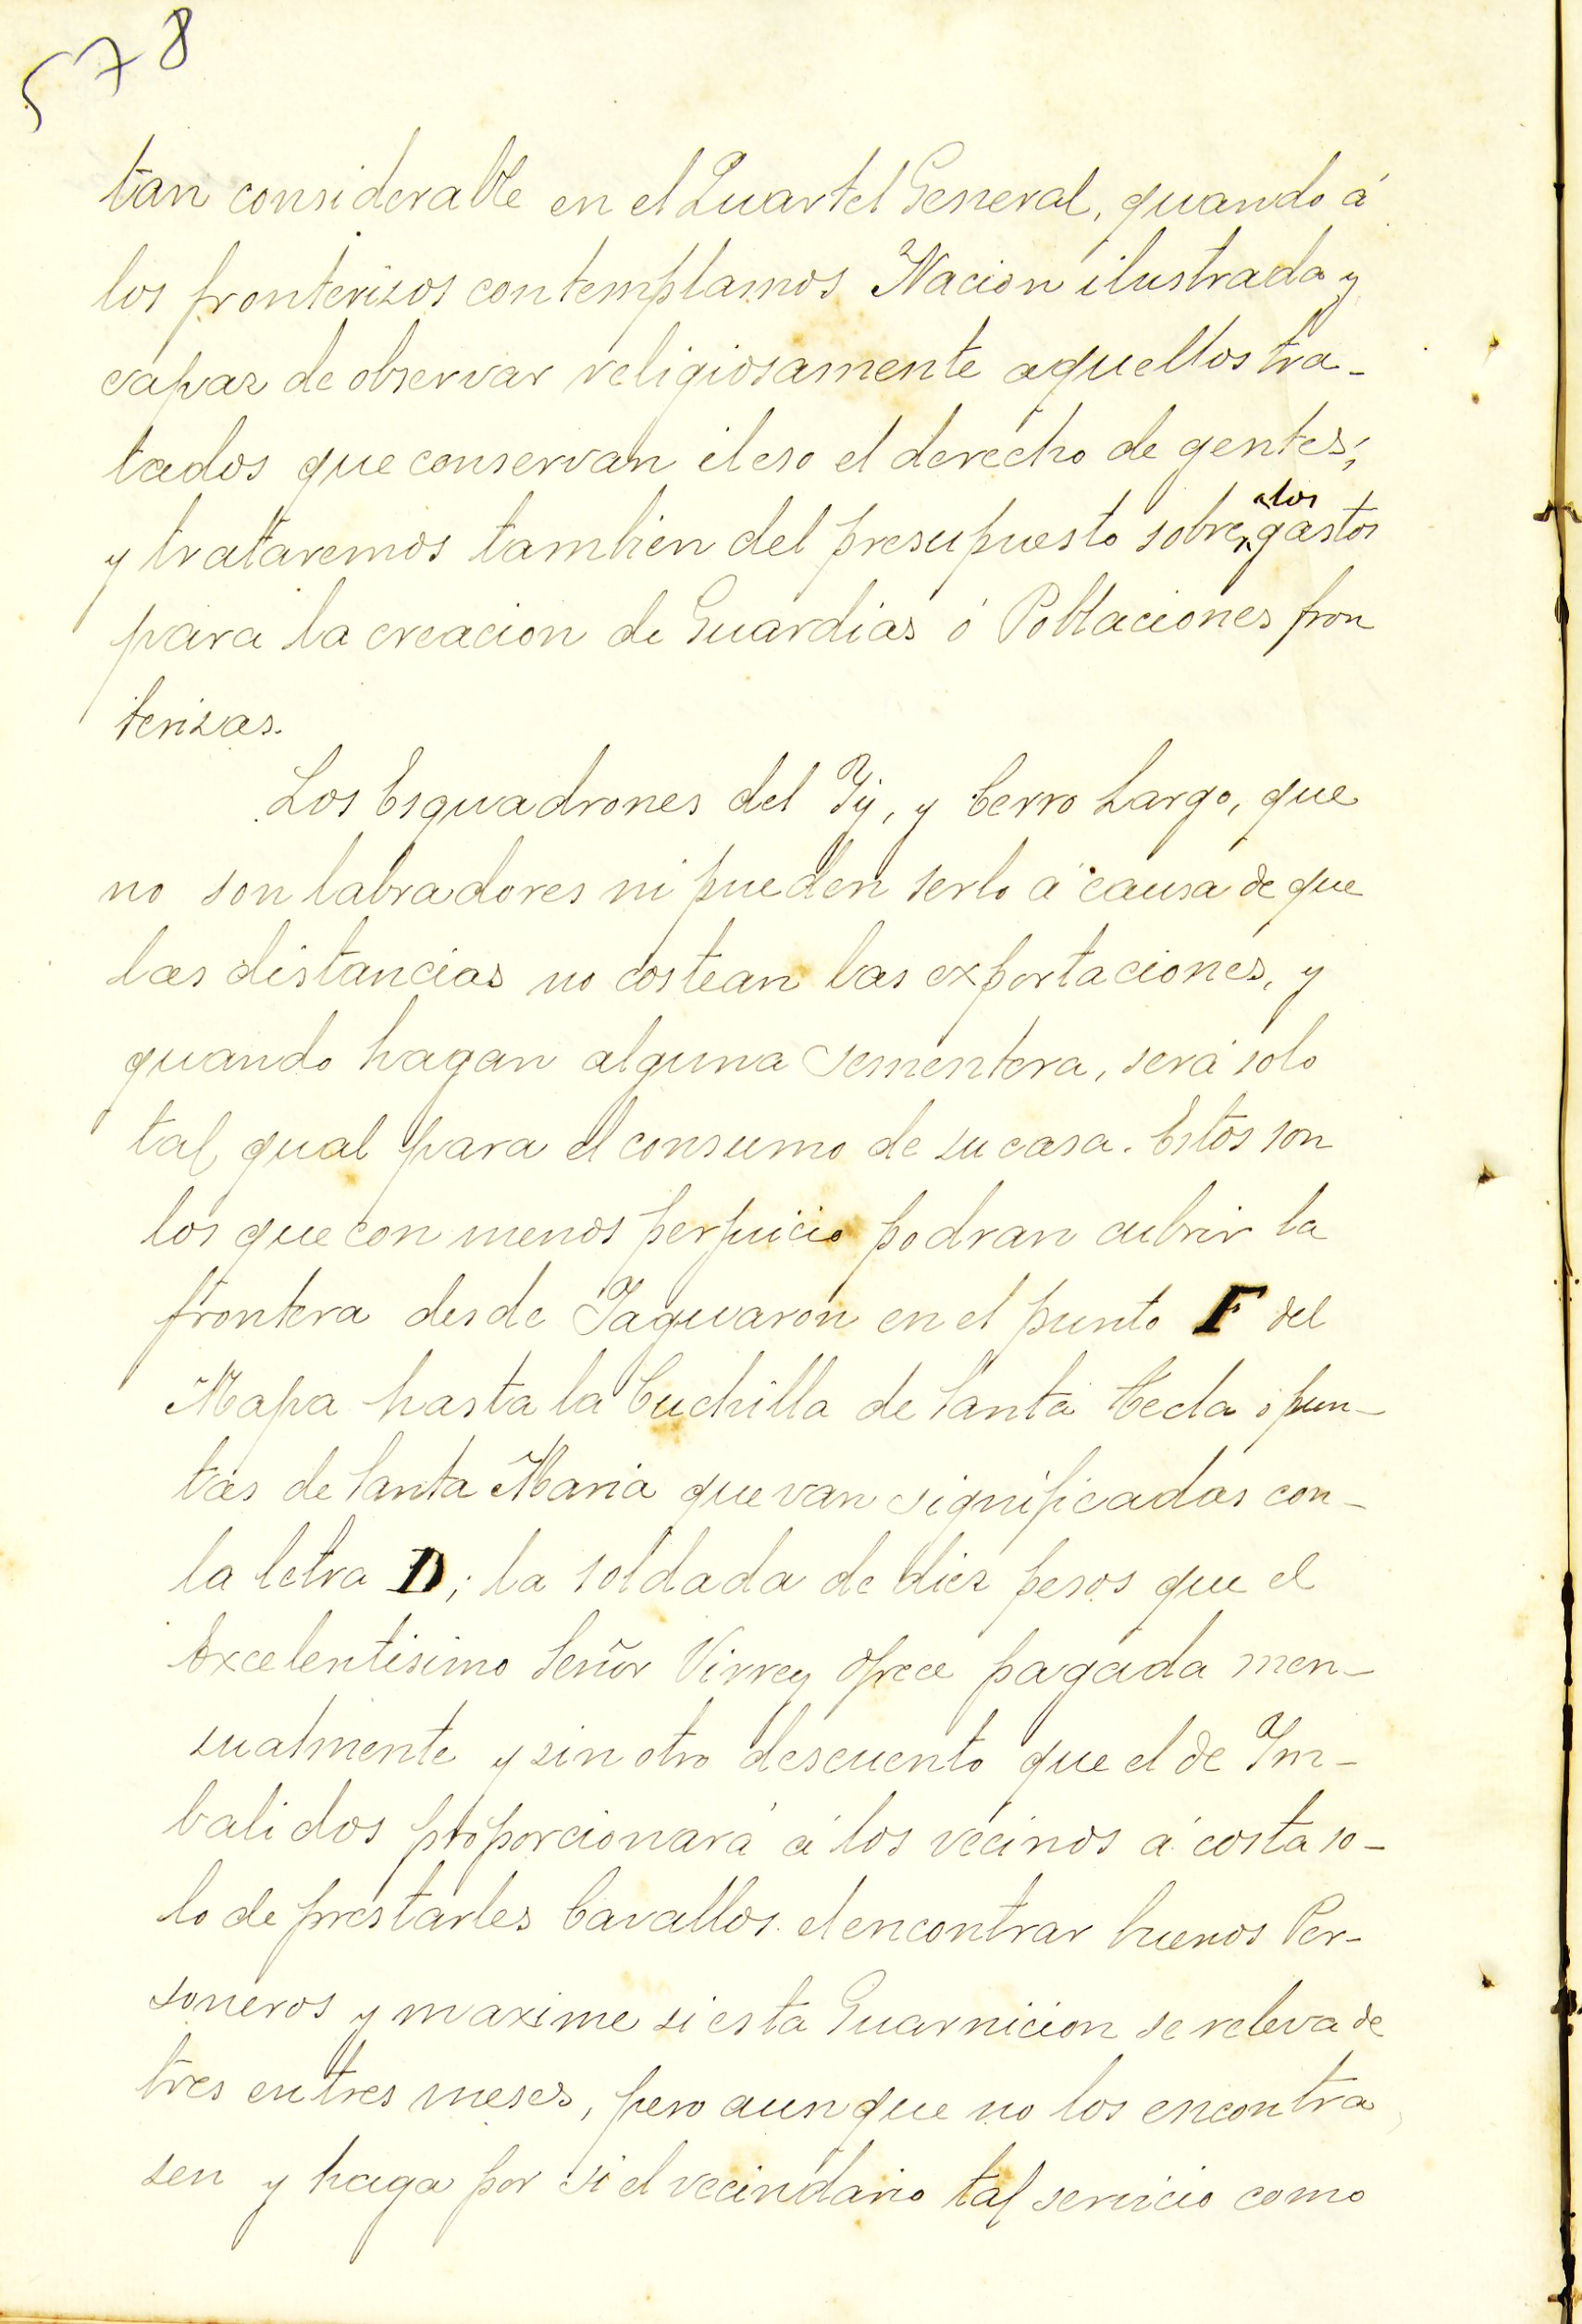 578
tan considerable en el Quartel General, quando á
los fronterisos contemplamos Nacion ilustrada y
capaz de observar religiosamente aquellos tra-
tados que conservan ileso el derecho de gentes;
y trataremos tambien del presupuesto sobre los gastos
para la creacion de Guardias ó Poblaciones fron
terisas.
Los Esquadrones del Yý, y Cerro Largo, que
no son labradores ni pueden serlo á causa de que
las distancias no costean las exportaciones, y
quando hagan alguna sementera, será solo
tal qual para el consumo de su casa. Estos son
los que con menos perjuicio podran cubrir la
frontera desde Yaguaron en el punto F del
Mapa hasta la Cuchilla de Santa Tecla ó pun-
tas de Santa Maria que van significadas con-
la letra D; la soldada de diez pesos que el
Excelentisimo Señor Virrey ofrece pagada men-
sualmente y sin otro descuento que el de Im-
balidos proporcionará á los vecinos á costa so-
lo de prestarles Cavallos el encontrar buenos Per-
soneros y maxime si esta Guarnicion se releva de
tres en tres meses, pero aunque no los encontra
sen y haga por si el vecindario tal servicio como